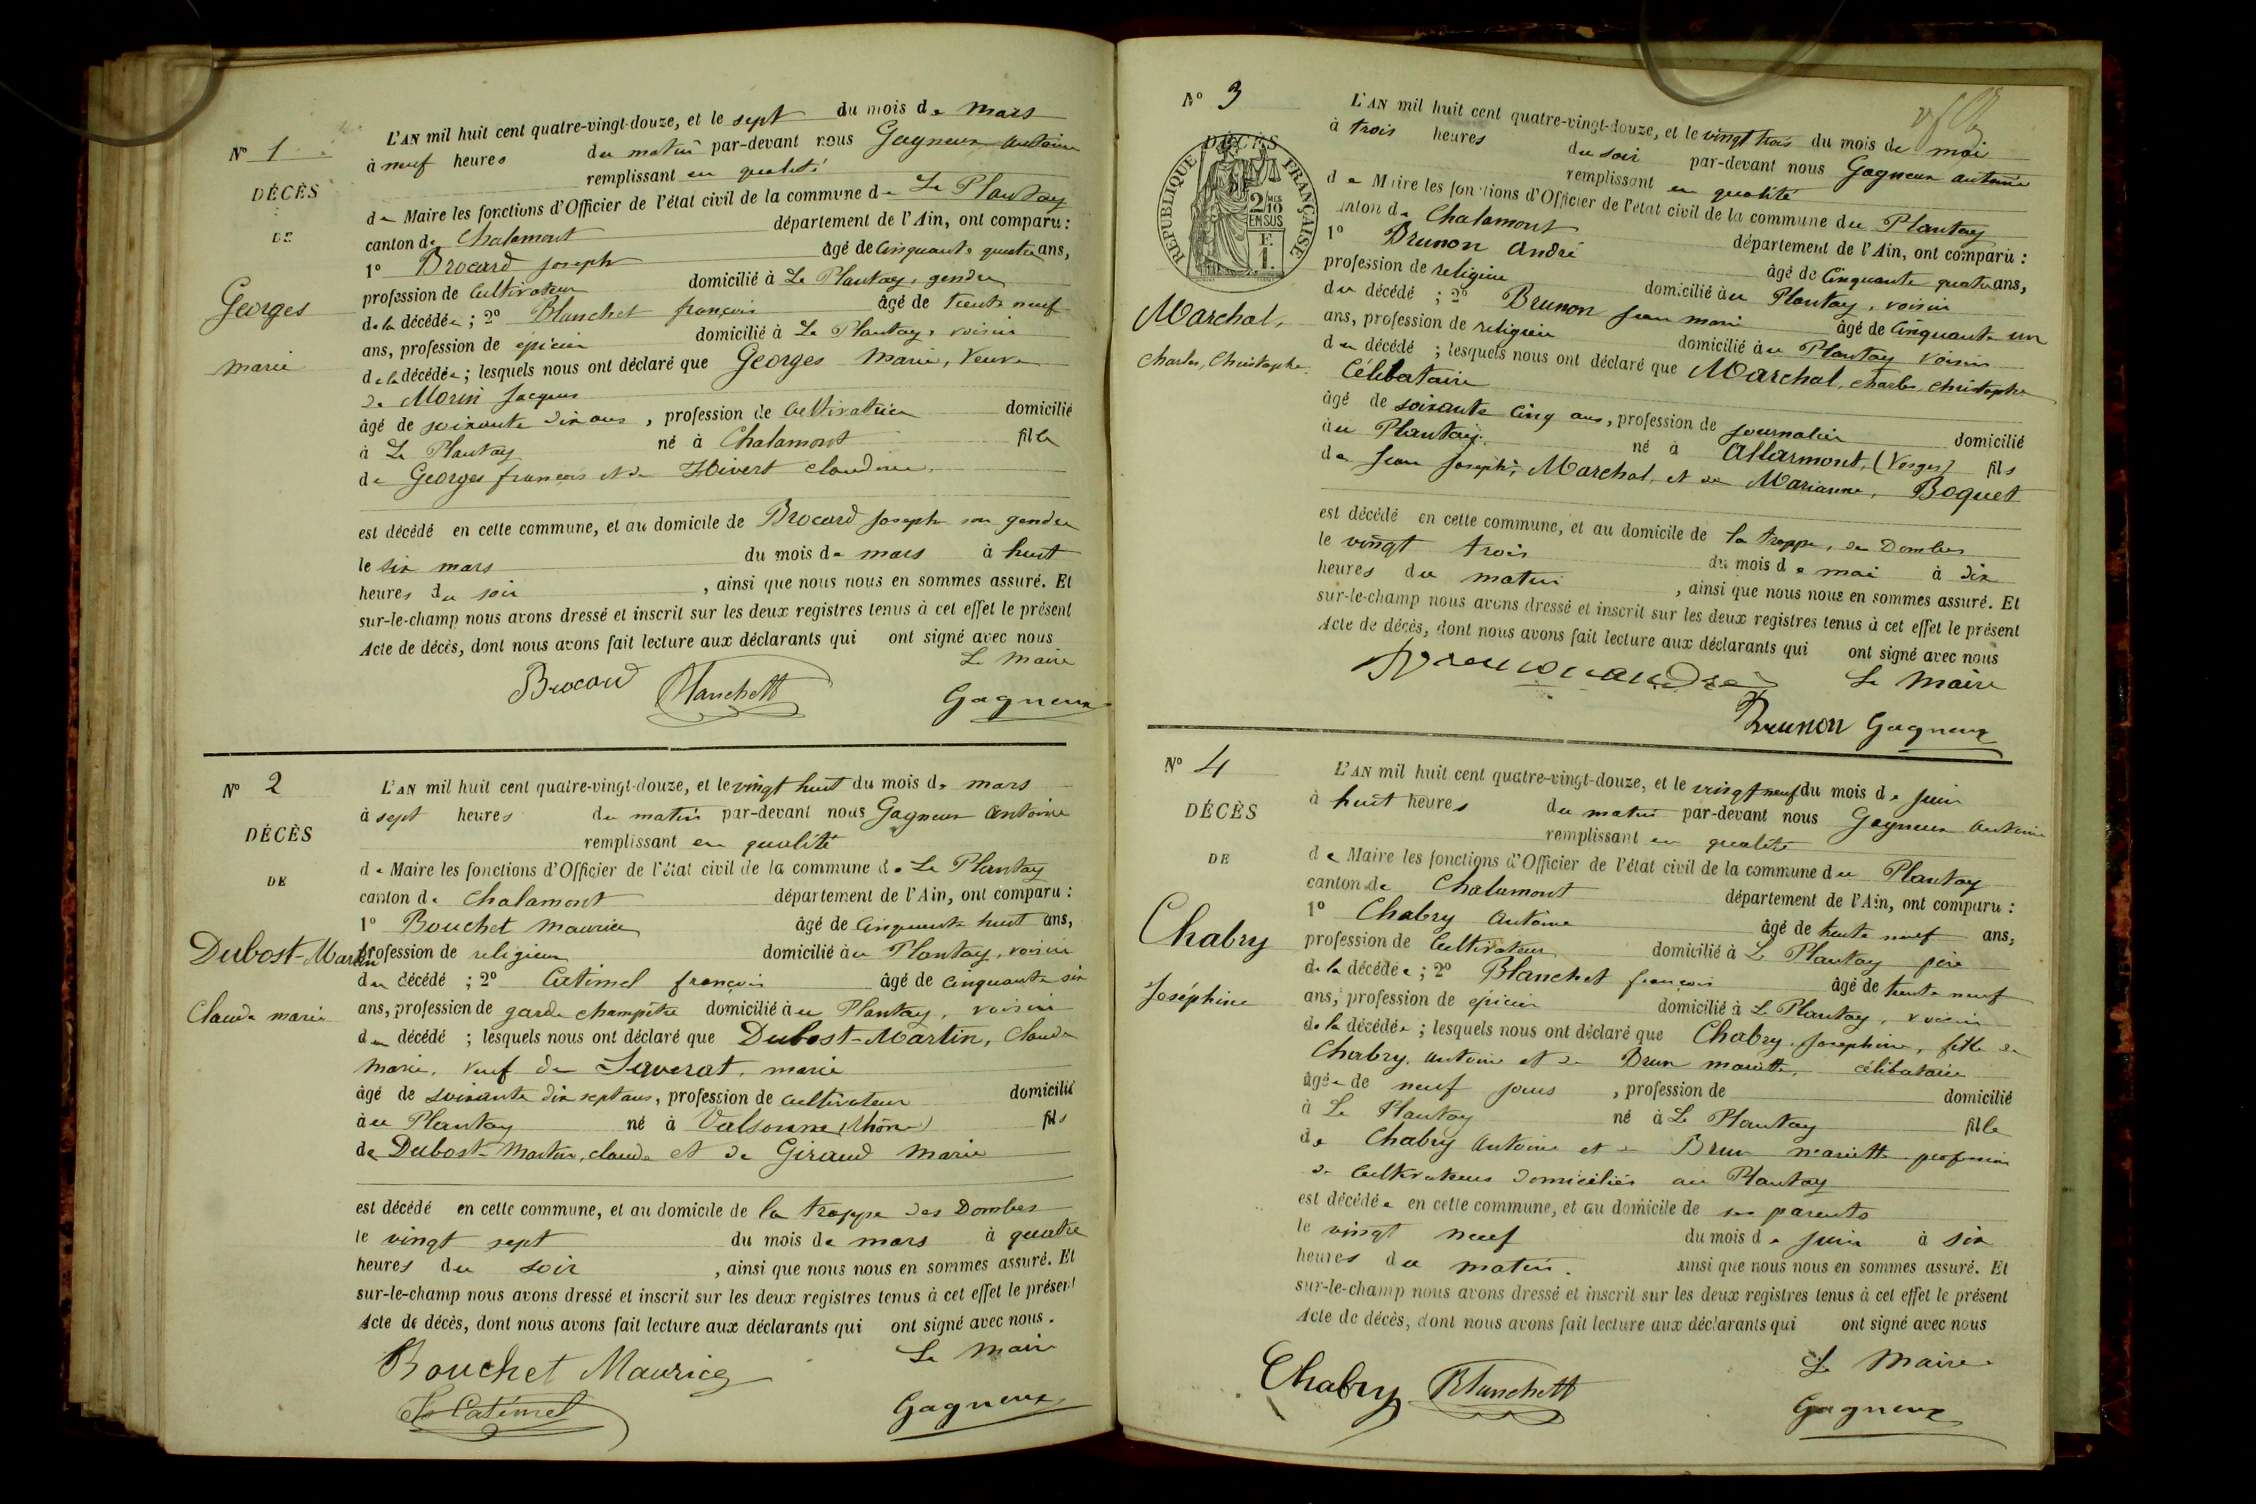 N° 1
DÉCÈS
DE
Georges
marie
L'AN mil huit cent quatre-vingt-douze, et le sept du mois de mars
à neuf heures du matin par-devant nous Gagneux antoine
remplissant en qualité
de Maire les fonctions d'Officier de l'état civil de la commune de Le Plantay
canton de Chalamont département de l'Ain, ont comparu :
1° Brocard Joseph âgé de cinquante quatre ans,
profession de cultivateur domicilié à Le Plantay, gendre
de la décédée ; 2° Blanchet françois âgé de trente neuf
ans, profession de épicier domicilié à Le Plantay, voisin
de la décédée ; lesquels nous ont déclaré que Georges Marie, Veuve
de Morin Jacques
âgé de soixante dix ans, profession de cultivatrice domicilié
à Le Plantay né à Chalamont fille
de Georges françois et de Hivert claudine
est décédé en cette commune, et au domicile de Brocard Joseph son gendre
le six mars du mois de mars à huit
heures du soir , ainsi que nous nous en sommes assuré. Et
sur-le-champ nous avons dressé et inscrit sur les deux registres tenus à cet effet le présent
Acte de décès, dont nous avons fait lecture aux déclarants qui ont signé avec nous
Le Maire
Brocard Blanchett Gagneux
N° 2
DÉCÈS
DE
Dubost-Martin
Claude marie
L'AN mil huit cent quatre-vingt-douze, et le vingt huit du mois de mars
à sept heures du matin par-devant nous Gagneux antoine
remplissant en qualité
de Maire les fonctions d'Officier de l'état civil de la commune de Le Plantay
canton de Chalamont département de l'Ain, ont comparu :
1° Bouchet Maurice âgé de cinquante huit ans,
profession de religieux domicilié au Plantay, voisin
du décédé ; 2° Catimel françois âgé de cinquante six
ans, profession de garde champêtre domicilié au Plantay, voisin
du décédé ; lesquels nous ont déclaré que Dubost-Martin, Claude
marie, veuf de Laverat, marie
âgé de soixante dix sept ans, profession de cultivateur domicilié
au Plantay né à Valsonne (Rhône) fils
de Dubost-Martin, claude et de Giraud Marie
est décédé en cette commune, et au domicile de la trappe des Dombes
le vingt sept du mois de mars à quatre
heures du soir , ainsi que nous nous en sommes assuré. Et
sur-le-champ nous avons dressé et inscrit sur les deux registres tenus à cet effet le présent
Acte de décès, dont nous avons fait lecture aux déclarants qui ont signé avec nous.
Le Maire
Bouchet Maurice
Catimel Gagneux
N° 3
RÉPUBLIQUE FRANÇAISE
DÉCÈS
2/10 EN SUS
F. 1.
Marchal,
Charles, Christophe.
L'AN mil huit cent quatre-vingt-douze, et le vingt trois du mois de mai
à trois heures du soir par-devant nous Gagneux antoine
remplissant en qualité
de Maire les fonctions d'Officier de l'état civil de la commune du Plantay
canton de Chalamont département de l'Ain, ont comparu :
1° Brunon André âgé de cinquante quatre ans,
profession de religieux domicilié au Plantay, voisin
du décédé ; 2° Brunon Jean marie âgé de cinquante un
ans, profession de religieux domicilié au Plantay voisin
du décédé ; lesquels nous ont déclaré que Marchal, Charles Christophe
Célibataire
âgé de soixante cinq ans, profession de journalier domicilié
au Plantay né à Allarmont, (Vosges) fils
de Jean Joseph, Marchal, et de Marianne, Boquet
est décédé en cette commune, et au domicile de la trappe, des Dombes
le vingt trois du mois de mai à dix
heures du matin , ainsi que nous nous en sommes assuré. Et
sur-le-champ nous avons dressé et inscrit sur les deux registres tenus à cet effet le présent
Acte de décès, dont nous avons fait lecture aux déclarants qui ont signé avec nous
Le Maire
Brunon andré
Brunon Gagneux
N° 4
DÉCÈS
DE
Chabry
Joséphine
L'AN mil huit cent quatre-vingt-douze, et le vingt neuf du mois de juin
à huit heures du matin par-devant nous Gagneux antoine
remplissant en qualité
de Maire les fonctions d'Officier de l'état civil de la commune du Plantay
canton de Chalamont département de l'Ain, ont comparu :
1° Chabry Antoine âgé de trente neuf ans,
profession de Cultivateur domicilié à Le Plantay père
de la décédée ; 2° Blanchet françois âgé de trente neuf
ans, profession de épicier domicilié à Le Plantay, voisin
de la décédée ; lesquels nous ont déclaré que Chabry, Josephine, fille de
Chabry, antoine et de Brun mariette, célibataire
âgée de neuf jours , profession de domicilié
à Le Plantay né à Le Plantay fille
de Chabry Antoine et de Brun mariette profession
de cultivateurs domiciliés au Plantay
est décédée en cette commune, et au domicile de ses parents
le vingt neuf du mois de juin à six
heures du matin. ainsi que nous nous en sommes assuré. Et
sur-le-champ nous avons dressé et inscrit sur les deux registres tenus à cet effet le présent
Acte de décès, dont nous avons fait lecture aux déclarants qui ont signé avec nous
Le Maire
Chabry Blanchett Gagneux